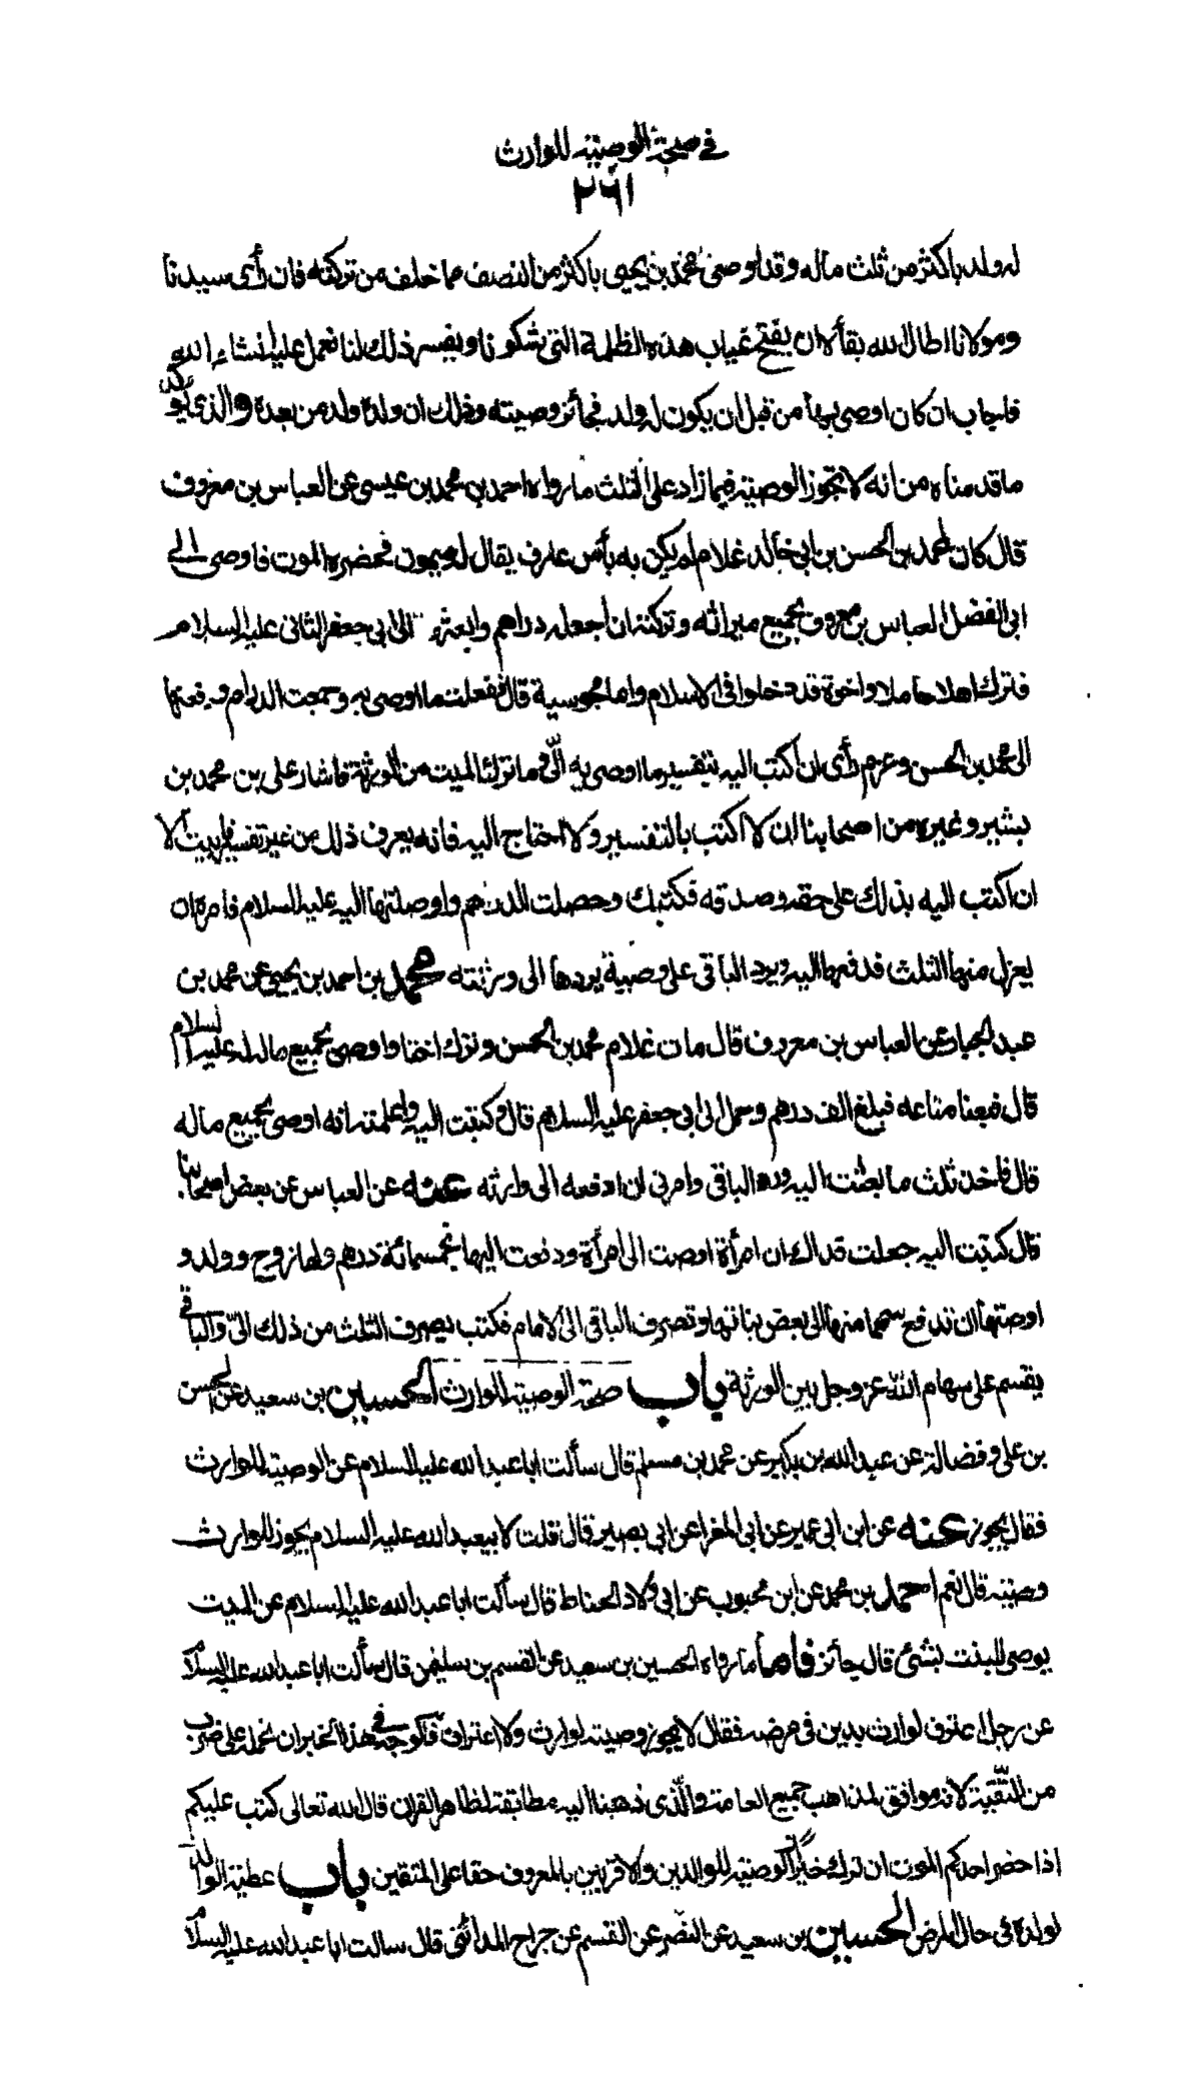 في صحة الوصية للوارث
٢٦١
له ولد باكثر من ثلث ماله وقد اوصى محمد بن يحيى باكثر من النصف مما خلف من تركته فان رأى سيدنا
ومولانا اطال الله بقاؤه ان يفتح غياب هذه الظلمة التي شكونا ويفسر ذلك لنا نعمل عليه انشاء الله
فاجاب ان كان اوصى بها من قبل ان يكون له ولد فجائز وصيته وذلك ان ولده ولد من بعده والذي يؤكد
ما قدمناه من انه لا تجوز الوصية فيما زاد على الثلث ما رواه احمد بن محمد بن عيسى عن العباس بن معروف
قال كان لمحمد بن الحسن بن ابي خالد غلام لم يكن به بأس عارف يقال له ميمون فحضره الموت فاوصى الى
ابي الفضل العباس بن معروف بجميع ميراثه وتركته ان اجعله دراهم وابعث بها الى ابي جعفر الثاني عليه السلام
فترك اهلا حاملا واخوة قد دخلوا في الاسلام واما مجوسية قال ففعلت ما اوصى به وجمعت الدراهم ودفعتها
الى محمد بن الحسن وعزم رأى ان اكتب اليه بتفسير ما اوصى به الّى وما ترك الميت من الورثة فاشار على بن محمد بن
بشير وغيره من اصحابنا ان لا اكتب بالتفسير ولا احتاج اليه فانه يعرف ذلك من غير تفسير فابيت الا
ان اكتب اليه بذلك على حقه وصدقه فكتبت وحصلت الدراهم واوصلتها اليه عليه السلام فامره ان
يعزل منها الثلث فدفعها اليه ويرد الباقي على وصيه يردها الى ورثته محمد بن احمد بن يحيى عن محمد بن
عبد الجبار عن العباس بن معروف قال مات غلام محمد بن الحسن وترك اختا واوصى بجميع ماله له عليه السلام
قال فبعنا متاعه فبلغ الف درهم وحمل الى ابي جعفر عليه السلام قال وكتبت اليه واعلمته انه اوصى بجميع ماله
قال فاخذ ثلث ما بعثت اليه ورد الباقي وامرني ان ادفعه الى وارثه عنه عن العباس عن بعض اصحابنا
قال كتبت اليه جعلت فداك ان امرأة اوصت الى امرأة ودفعت اليها خمسمائة درهم ولها زوج وولد و
اوصتها ان تدفع سهما منها الى بعض بناتها وتصرف الباقي الى الامام فكتب يصرف الثلث من ذلك الىّ والباقي
يقسم على سهام الله عز وجل بين الورثة باب صحة الوصية للوارث الحسين بن سعيد عن الحسن
بن علي وفضالة عن عبد الله بن بكير عن محمد بن مسلم قال سألت ابا عبد الله عليه السلام عن الوصية للوارث
فقال يجوز عنه عن ابن ابي عمير عن ابي المغرا عن ابي بصير قال قلت لابيعبد الله عليه السلام يجوز للوارث
وصية قال نعم احمد بن محمد عن ابن محبوب عن ابي ولاد الحناط قال سألت ابا عبد الله عليه السلام عن الميت
يوصى للبنت بشئ قال جائز فاما ما رواه الحسين بن سعيد عن القسم بن سليمن قال سألت ابا عبد الله عليه السلام
عن رجل اعترف لوارث بدين في مرضه فقال لا يجوز وصيته لوارث ولا اعتراف فالوجه في هذا الخبر ان نحمله على ضرب
من التقية لانه موافق لمذاهب جميع العامة والّذى ذهبنا اليه مطابقة لظاهر القران قال الله تعالى كتب عليكم
اذا حضر احدكم الموت ان ترك خيرًا الوصية للوالدين والاقربين بالمعروف حقا على المتقين باب عطية الوالد
لولده في حال المرض الحسين بن سعيد عن النضر عن القسم عن جراح المدائني قال سالت ابا عبد الله عليه السلام